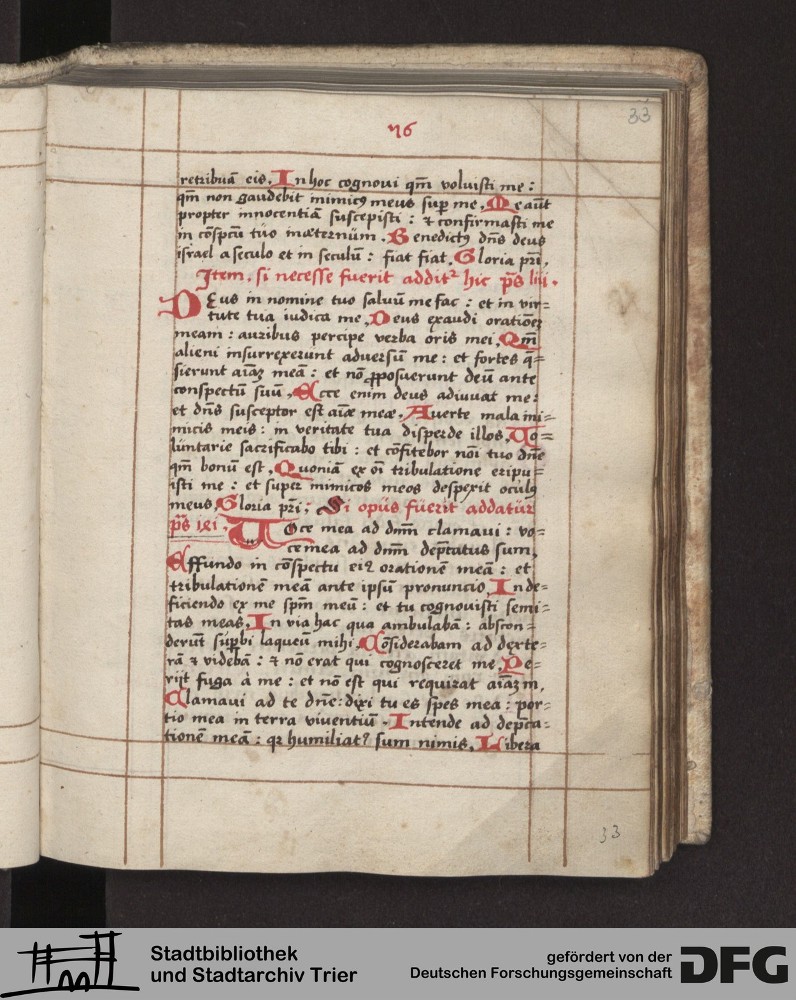 33
76
retribuā eis. In hoc cognovi qm̄ voluisti me :
qm̄ non gaudebit inimicꝰ meus suꝑ me. Me aūt
propter innocentiā suscepisti : ⁊ confirmasti me
in cōspcū tuo in æternūm. Benedictꝰ dn̄s deus
israel a seculo et in seculū : fiat fiat. Gloria pr̄i.
Item. si necesse fuerit additᷣ hic p̄s liii.
DEus in nomine tuo salvū me fac : et in vir=
tute tua iudica me. Deus exaudi orationeꝫ
meam : auribus percipe verba oris mei. Qm̄
alieni insurrexerunt adversū me : et fortes q̄=
sierunt aīaꝫ meā : et nō ꝓposuerunt deū ante
conspectū suū. Ecce enim deus adiuvat me :
et dn̄s susceptor est aīæ meæ. Averte mala ini=
micis meis : in veritate tua disperde illos. Vo=
lūntarie sacrificabo tibi : et cōfitebor nōi tuo dn̄e
qm̄ bonū est. Quoniā ex oī tribulatione eripu=
isti me : et super inimicos meos despexit oculꝰ
meus. Gloria pr̄i; Si opūs fūerit addatūr
p̄s 141. VOce mea ad dn̄m clamavi : vo=
ce mea ad dn̄m dep̄catus sum.
Effundo in cōspectu eiꝰ orationē meā : et
tribulationē meā ante ipsū pronuncio. In de=
ficiendo ex me sp̄m meū : et tu cognovisti semi=
tas meas. In via hac qua ambulabā : abscon=
derūt suꝑbi laqueū mihi. Cōsiderabam ad dexte=
rā ⁊ videbā : ⁊ nō erat qui cognosceret me. Pe=
rijt fuga à me : et nō est qui requirat aīaꝫ m.
Clamavi ad te dn̄e: dixi tu es spes mea : por=
tio mea in terra viventiū. Intende ad dep̄ca=
tionē meā : qꝛ humiliatꝰ sum nimis. Libera
33
Stadtbibliothek
und Stadtarchiv Trier
gefördert von der
Deutschen Forschungsgemeinschaft
DFG